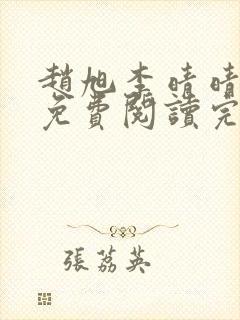 趙旭李晴晴
免費閱讀完
張荔英